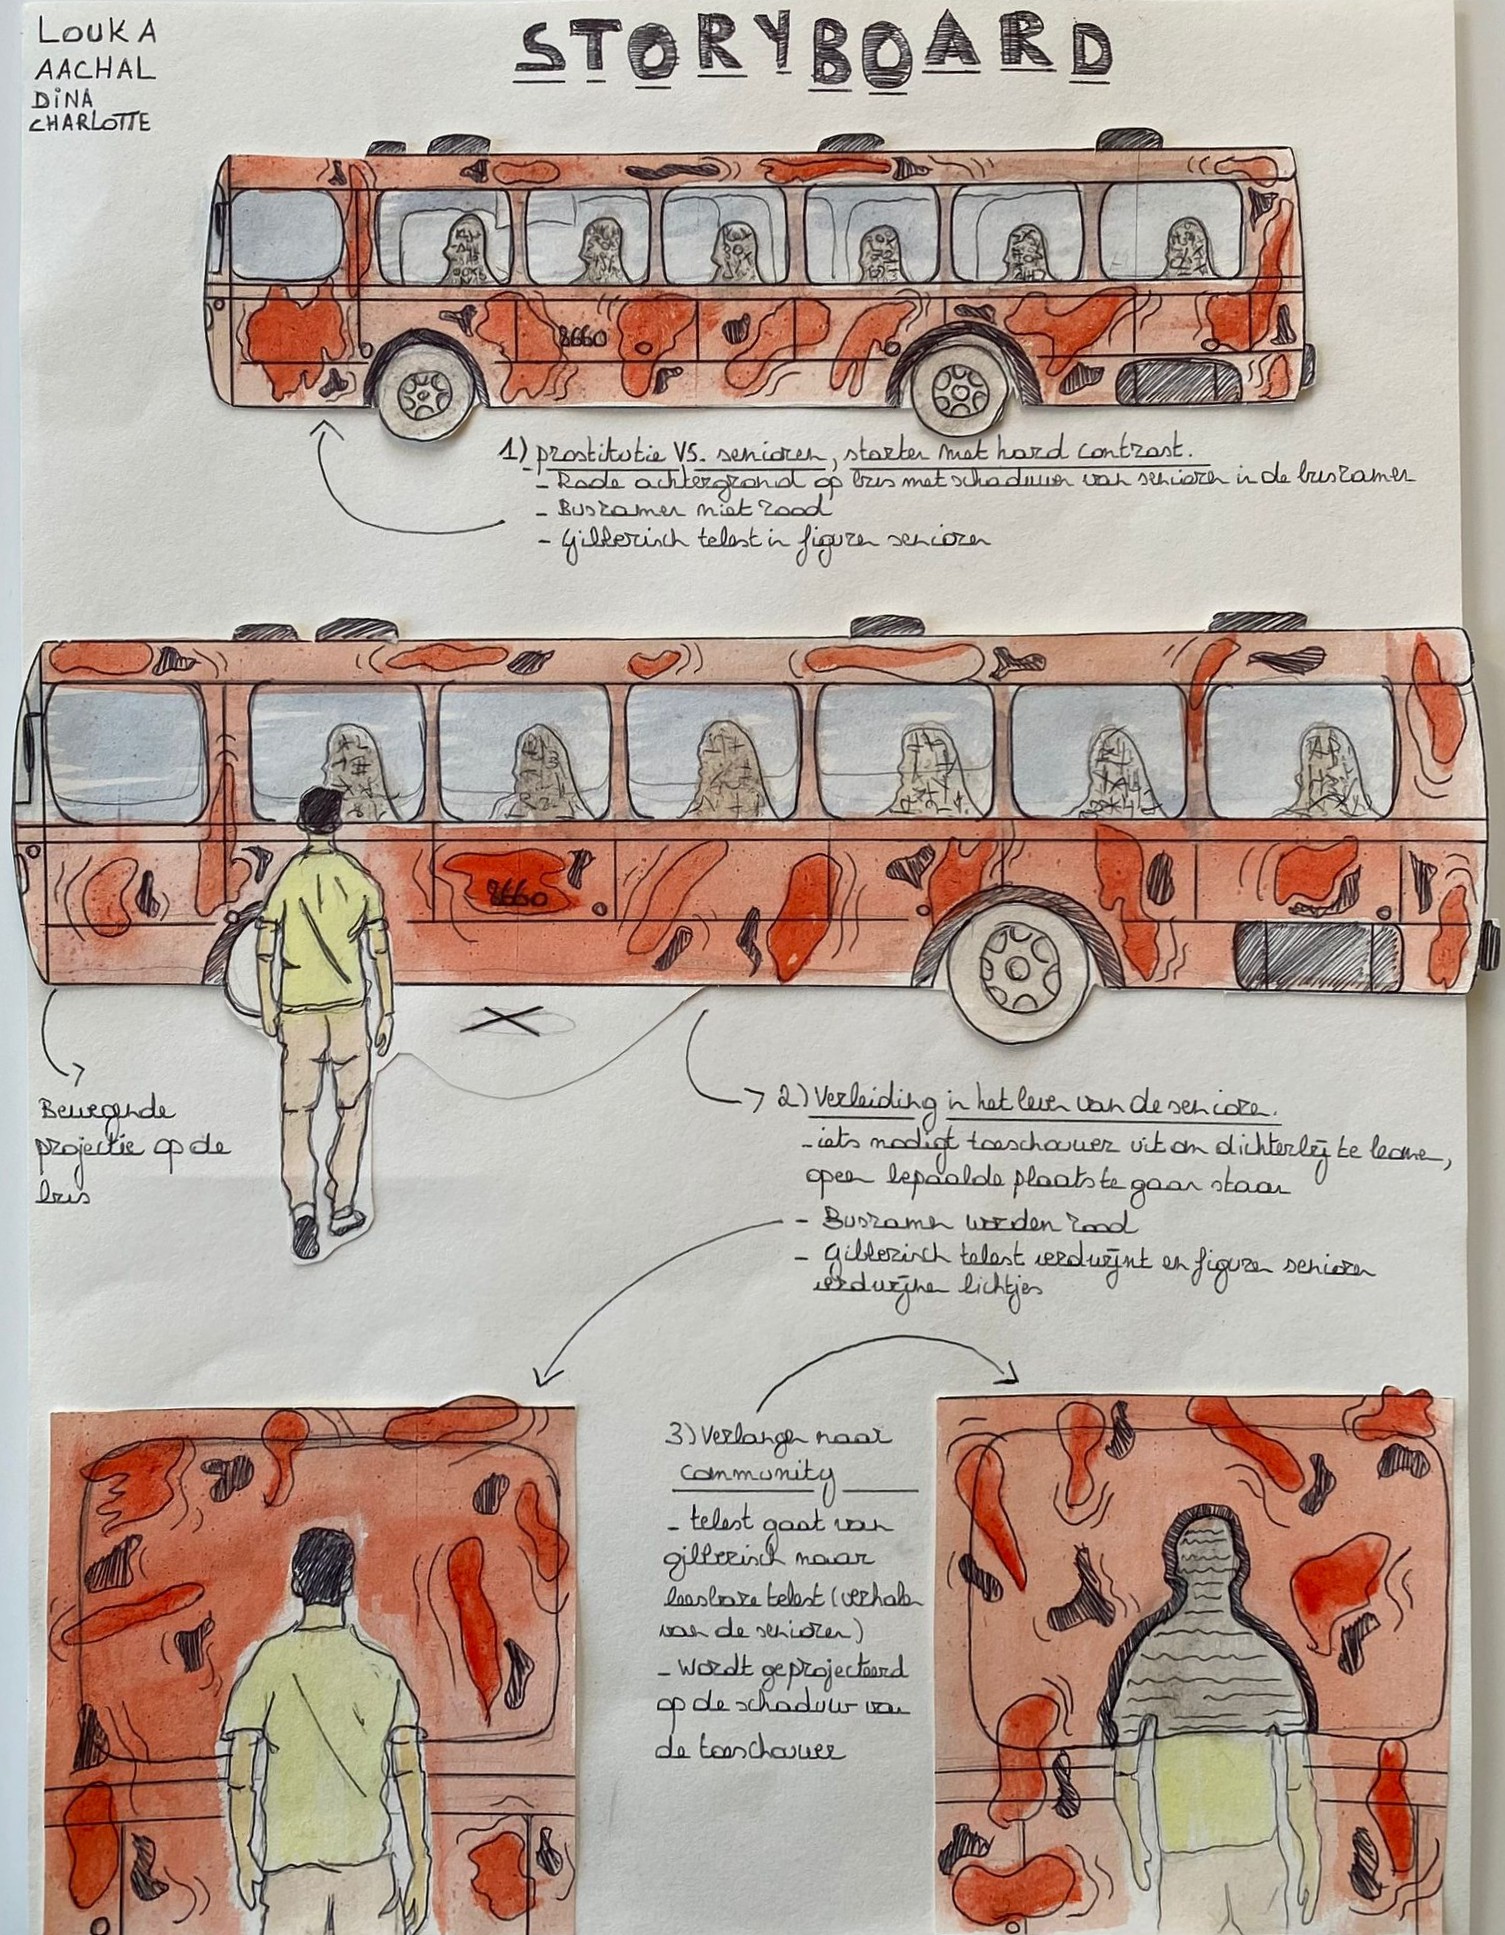 LOUKA
AACHAL
DINA
CHARLOTTE
STORYBOARD
8660
1) prostitutie VS. senioren, starten met hard contrast.
- Rode achtergrond op bus met schaduwen van senioren in de busramen
- Busramen niet rood
- Gibberisch tekst in figuren senioren
8660
Bewegende
projectie op de
bus
2) Verleiding in het leven van de senioren.
- iets nodigt toeschouwer uit om dichterbij te komen,
op een bepaalde plaats te gaan staan
- Busramen worden rood
- Gibberisch tekst verdwijnt en figuren senioren
verdwijnen lichtjes
3) Verlangen naar
community
- tekst gaat van
gibberisch naar
leesbare tekst (verhalen
van de senioren)
- Wordt geprojecteerd
op de schaduw van
de toeschouwer